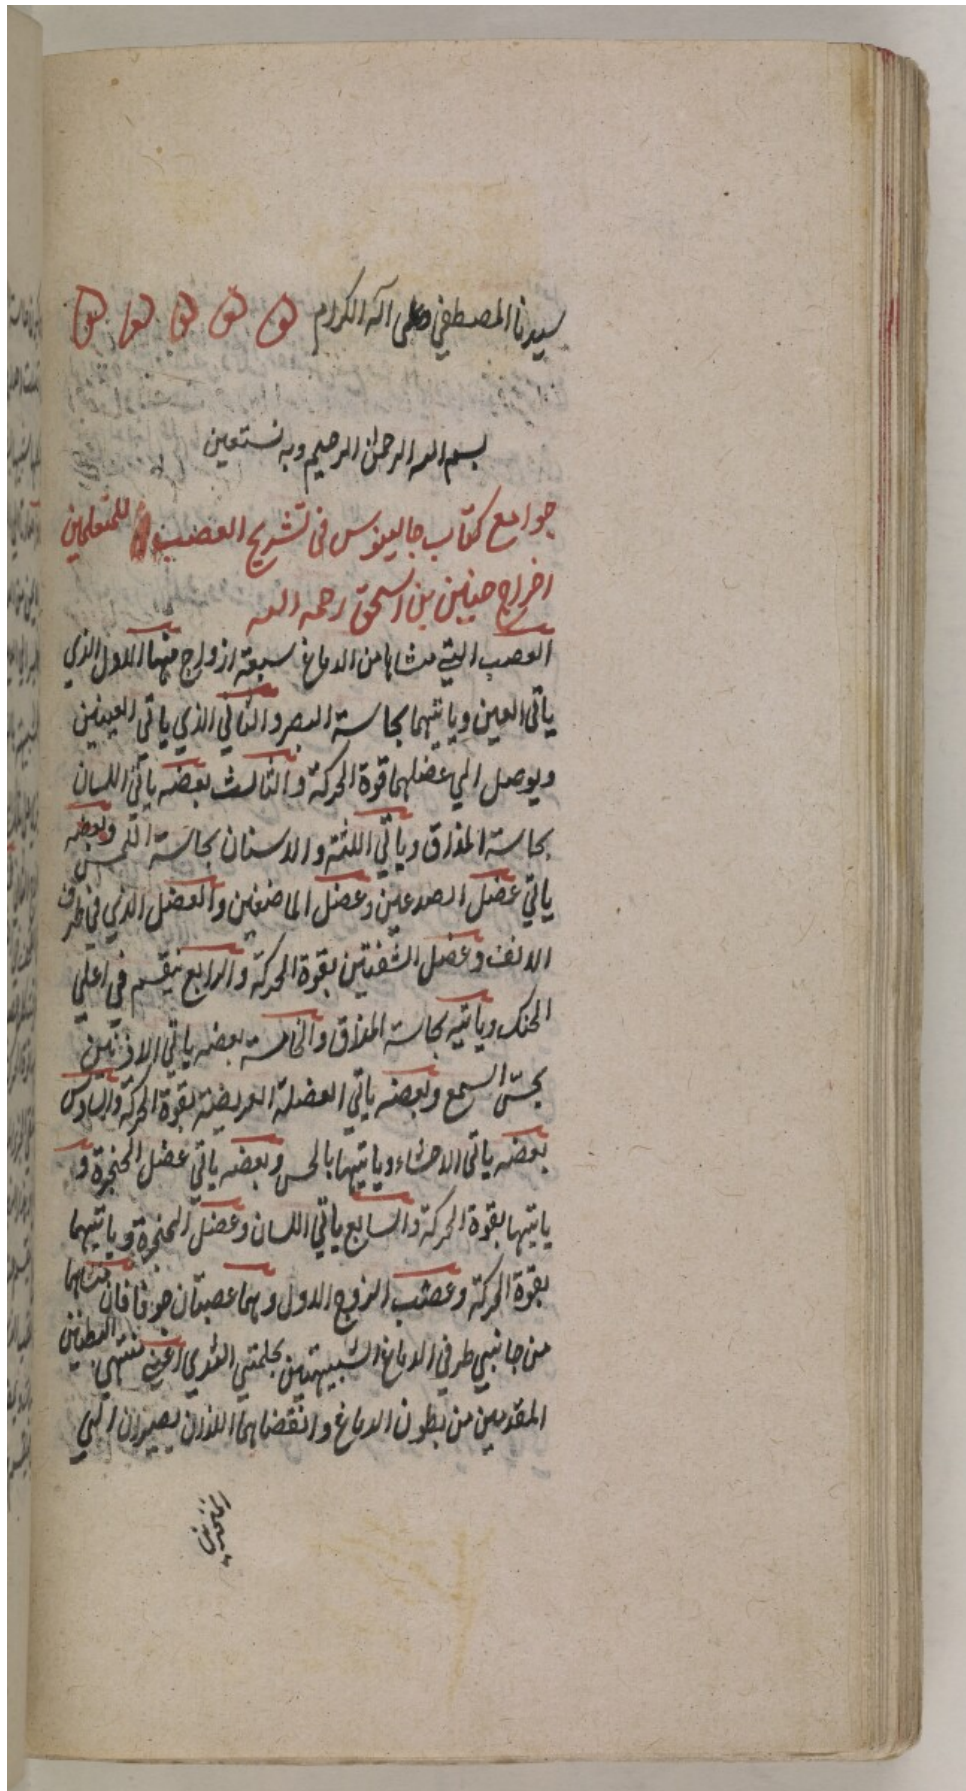 سيدنا المصطفي وعلى آله الكرام
بسم الله الرحمن الرحيم وبه نستعين
جوامع كتاب جالينوس فى تشريح العصب للمتعلمين
اخراج حنين بن اسحق رحمه الله
العصب التي منشاها من الدماغ سبعة ازواج منها الاول الذي
ياتى العين وياتيهما بحاسة البصر والثاني الذي ياتي العينين
ويوصل الي عضلهما قوة الحركة والثالث بعضه ياتي اللسان
بحاسة المذاق وياتي اللثة والاسنان بحاسة اللمس وبعضه
ياتي عضل الصدغين وعضل الماضغين والعضل الذي في طرف
الانف وعضل الشفتين بقوة الحركة والرابع ينقسم في اعلي
الحنك وياتيه بحاسة المذاق والخامسة بعضه ياتي الاذنين
بحس السمع وبعضه ياتي العضلة العريضة بقوة الحركة والسادس
بعضه ياتى الاحشاء وياتيها بالحس وبعضه ياتي عضل الحنجرة و
ياتيها بقوة الحركة والسابع ياتي اللسان وعضل الحنجرة وياتيهما
بقوة الحركة وعصب الزوج الاول وهما عصبتان جوفاوان منشاهما
من جانبي طرفي الدماغ الشبيهتين بحلمتي الثدي اعني منتهي البطنين
المقدمين من بطون الدماغ وانقضاهما اللذان يصيران الي